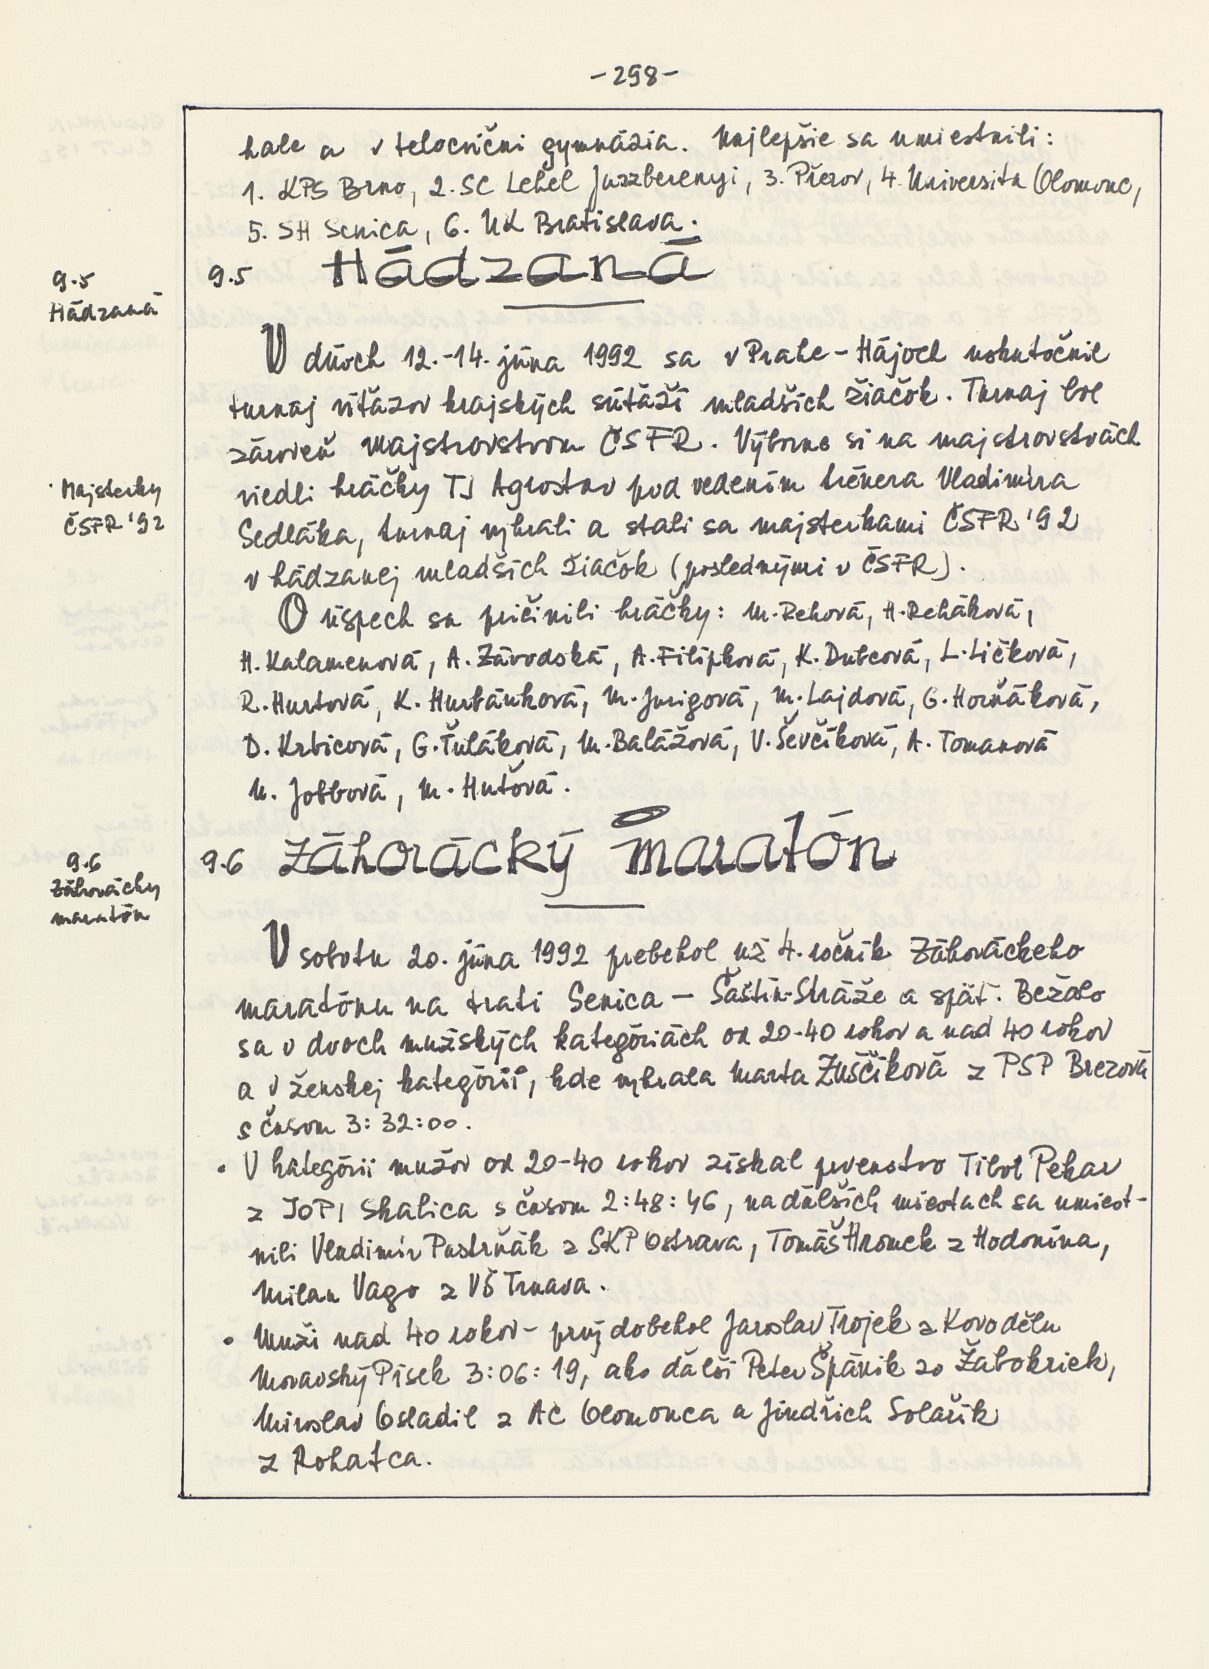 -298-
hale a v telocvični gymnázia. Najlepšie sa umiestnili:
1. KPS Brno, 2. SC Lehel Jaszberenyi, 3. Přerov, 4. Universita Olomouc,
5. SH Senica, 6. UK Bratislava.
9.5
Hádzaná
9.5 Hádzaná
V dňoch 12.-14. júna 1992 sa v Prahe - Hájoch uskutočnil
turnaj víťazov krajských súťaží mladších žiačok. Turnaj bol
zároveň Majstrovstvom ČSFR. Výborne si na majstrovstvách
Majsterky
ČSFR '92
viedli hráčky TJ Agrostav pod vedením trénera Vladimíra
Sedláka, turnaj vyhrali a stali sa majsterkami ČSFR '92
v hádzanej mladších žiačok (poslednými v ČSFR).
O úspech sa pričinili hráčky: M. Rehová, H. Reháková,
H. Kalamenová, A. Závodská, A. Filípková, K. Dubcová, L. Ličková,
R. Hurtová, K. Hurbánková, M. Jurigová, M. Lajdová, G. Horňáková,
D. Krbicová, G. Ťuláková, M. Balážová, V. Ševčíková, A. Tomanová
M. Jobbová, M. Hutová.
9.6
Záhorácky
maratón
9.6 Záhorácky maratón
V sobotu 20. júna 1992 prebehol už 4. ročník Záhoráckeho
maratónu na trati Senica - Šaštín-Stráže a späť. Bežalo
sa v dvoch mužských kategóriách od 20-40 rokov a nad 40 rokov
a v ženskej kategórii, kde vyhrala Marta Zuščíková z PSP Brezová
s časom 3:32:00.
• V kategórii mužov od 20-40 rokov získal prvenstvo Tibor Pekar
z JOPI Skalica s časom 2:48:46, na ďalších miestach sa umiest-
nili Vladimír Pastrňák z SKP Ostrava, Tomáš Hromek z Hodonína,
Milan Vago z VŠ Trnava.
• Muži nad 40 rokov - prvý dobehol Jaroslav Trojek z Kovodělu
Moravský Písek 3:06:19, ako ďalší Peter Špánik zo Žabokriek,
Miroslav Osladil z AC Olomouca a Jindřich Solařík
z Rohatca.